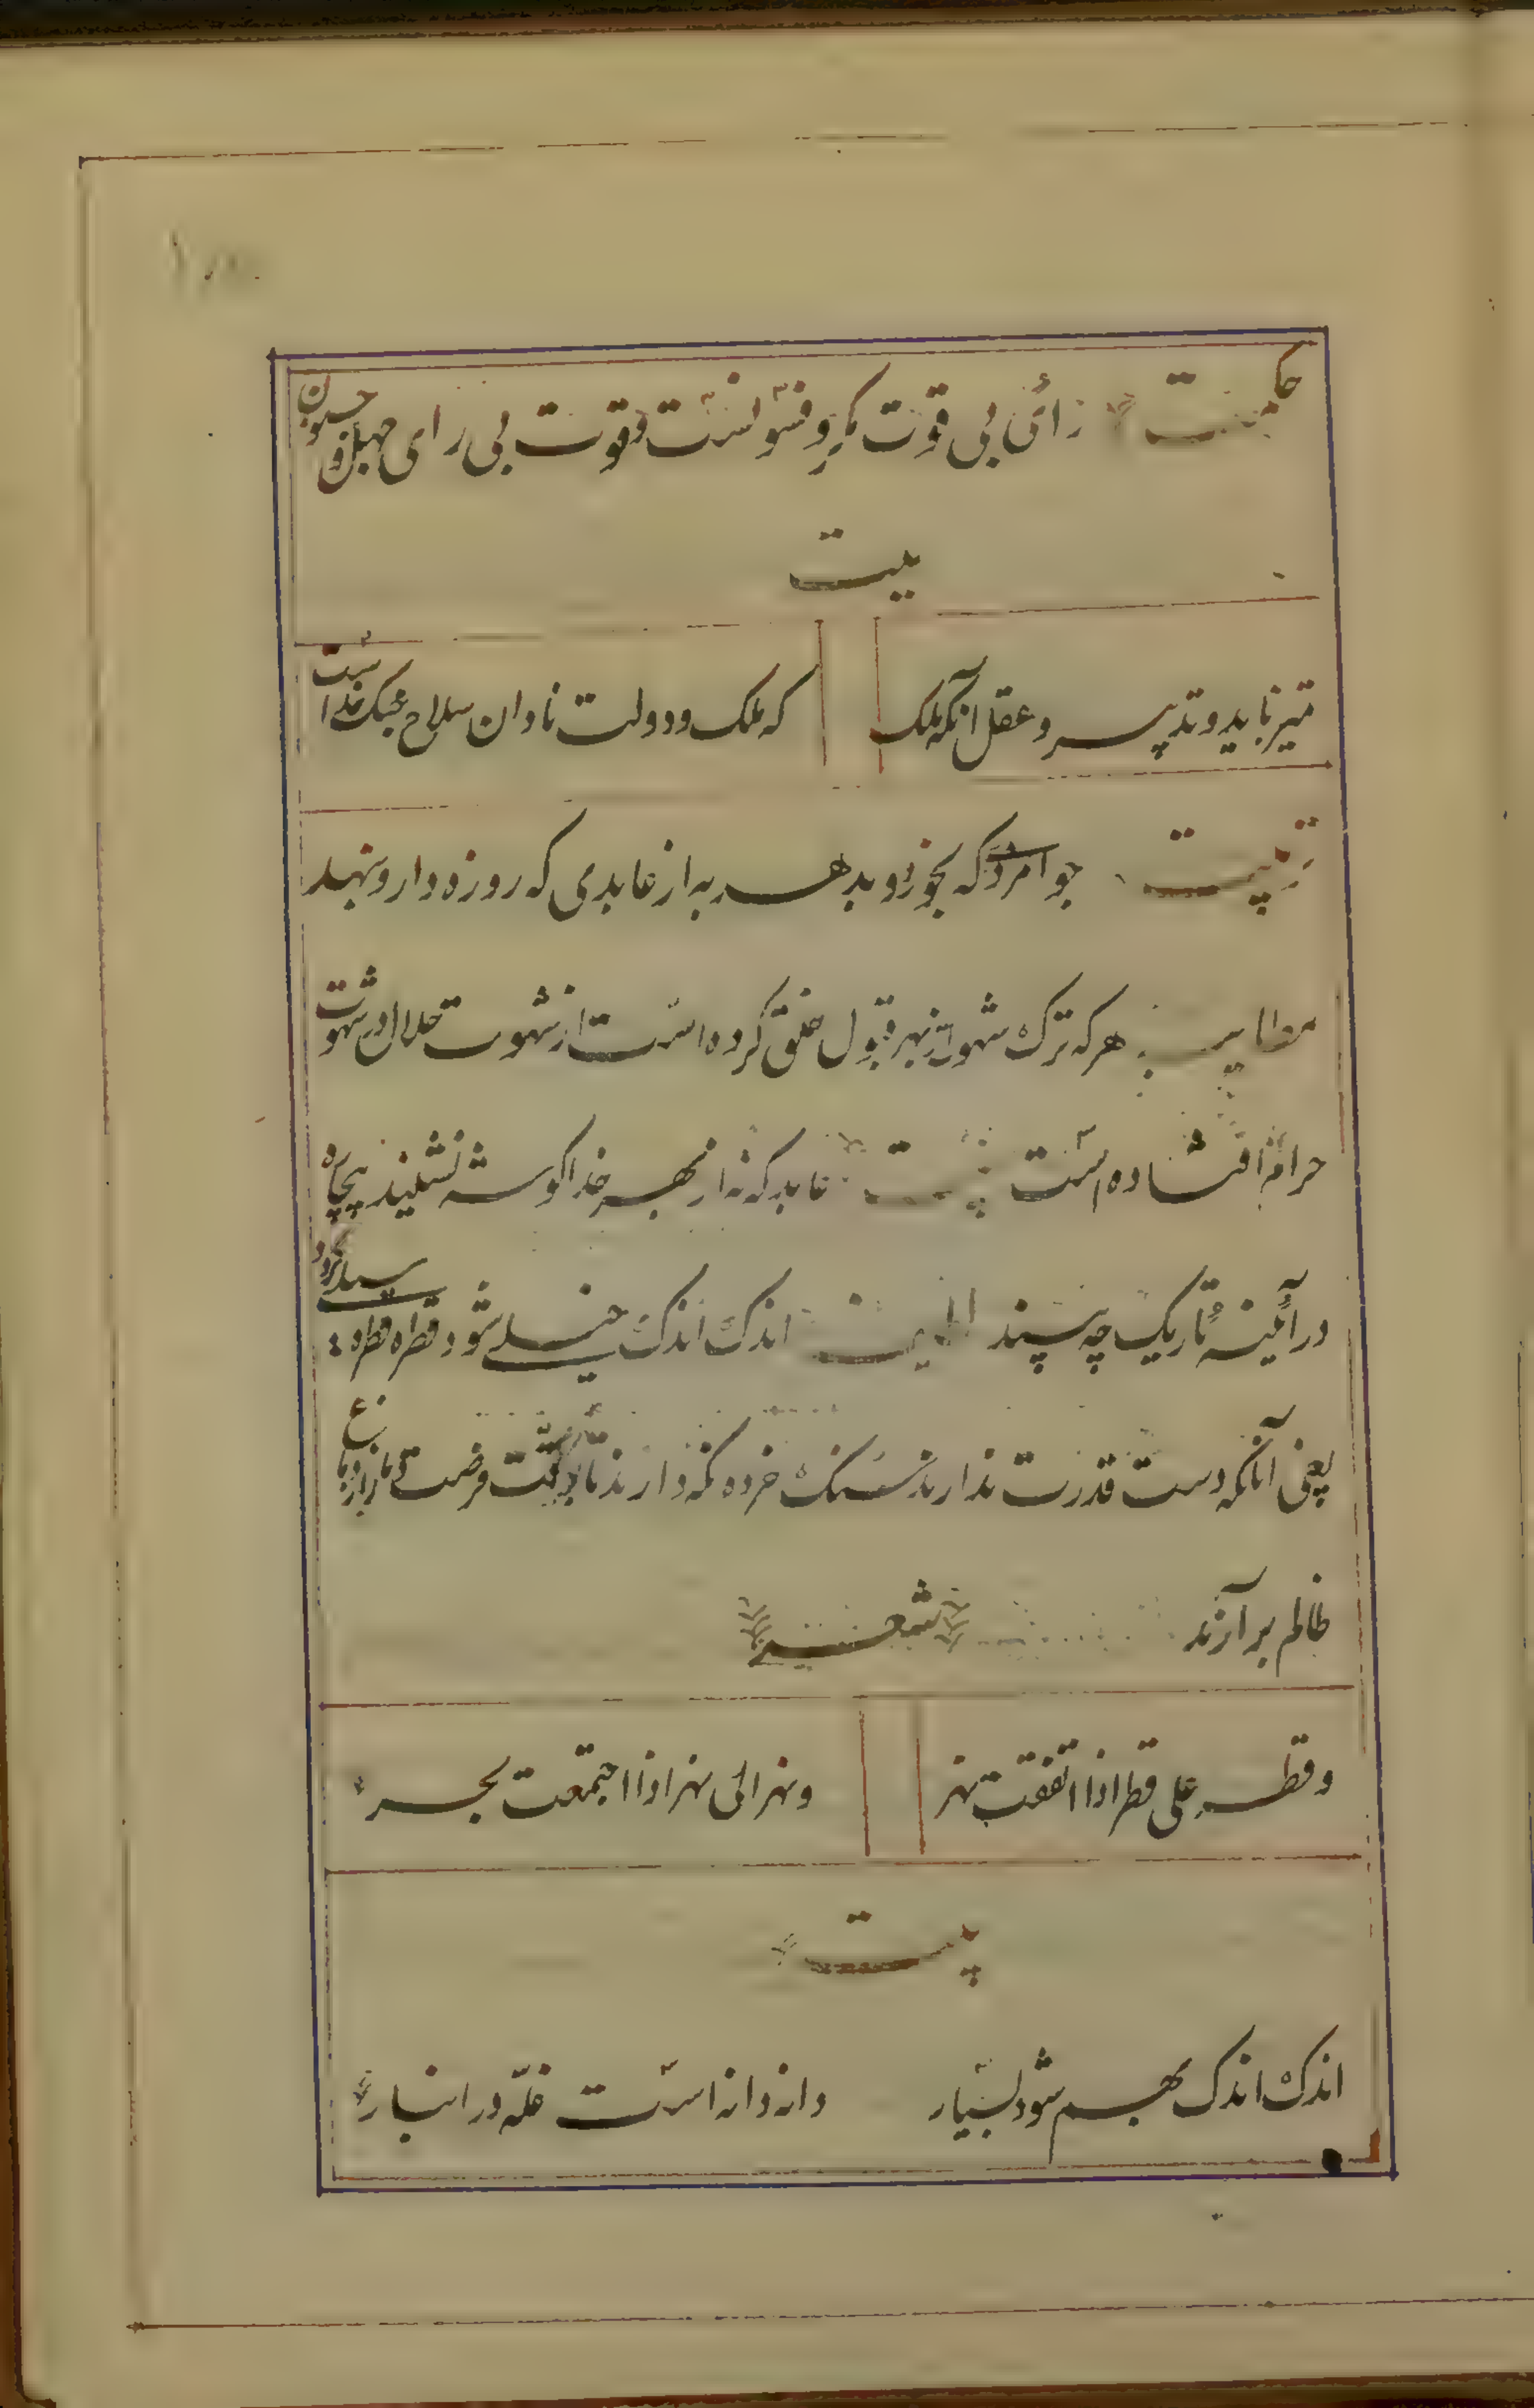 حکمت رائی بی قوت مکر و فسونست و قوت بی رای جهل و جنون
بیت
تمیز باید و تدبیر و عقل آنکه ملک
که ملک و دولت نادان سلاح جنک خداست
تربیت جوامرد که بخورد و بدهد به از عابدی که روزه دارد و بنهد
هر که ترک شهوت از بهر قبول خلق کرده است از شهوت حلال در شهوت
حرام افتاده است بیت عابد که نه از بهر خدا کوشه نشیند بیچاره
در آئینهٔ تاریک چه بیند اندک اندک خیلے شود و قطره قطره سیلے کردد
یعنی آنانکه دست قدرت ندارند سنک خرده نکه دارند تا بوقت فرصت دمار از دماغ
ظالم بر آرند شعر
و قطر علی قطر اذا اتفقت نهر
و نهر الی نهر اذا اجتمعت بحر
بیت
اندک اندک بهم شود بسیار
دانه دانه است غلّه در انبار